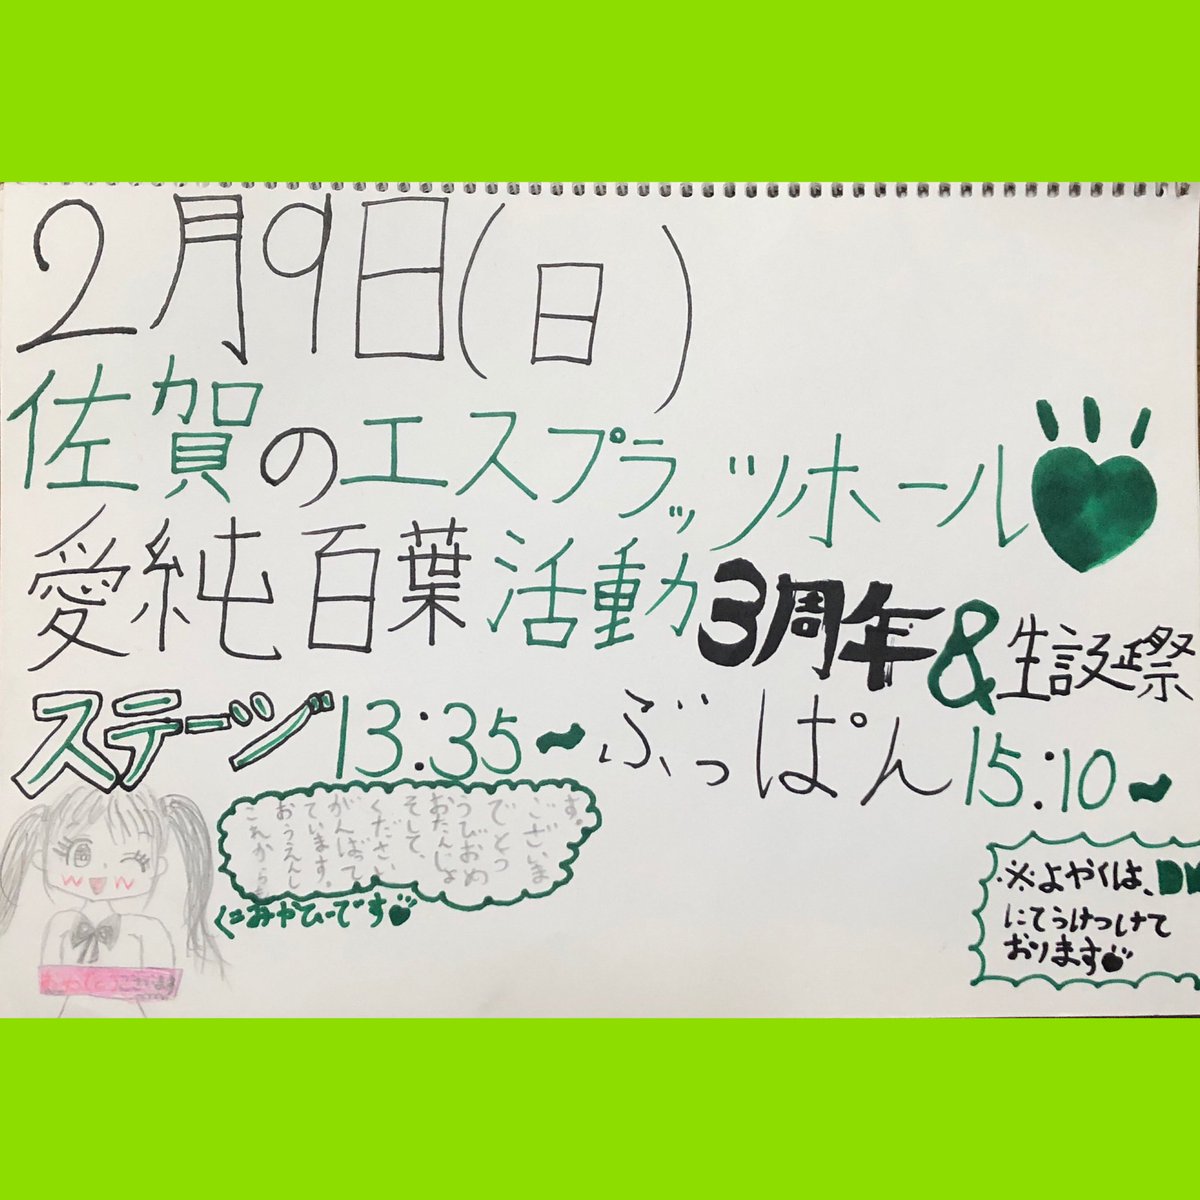 2月9日(日)
佐賀のエスプラッツホール
愛純百葉活動3周年&生誕祭
ステージ13:35~ぶっぱん15:10~
これからも
おうえんし
ています。
がんばって
ください
そして、
おたんじょ
うびおめ
でとう
ございま
す。
※よやくは、DM
にてうけつけて
おります